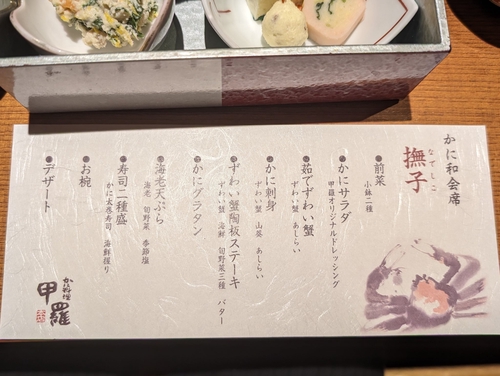 かに和会席
なでしこ
撫子
前菜
小鉢二種
かにサラダ
甲羅オリジナルドレッシング
茹でずわい蟹
ずわい蟹 あしらい
かに刺身
ずわい蟹 山葵 あしらい
ずわい蟹陶板ステーキ
ずわい蟹 海鮮 旬野菜三種 バター
かにグラタン
海老天ぷら
海老 旬野菜 季節塩
寿司二種盛
かに太巻寿司 海鮮握り
お椀
デザート
かに料理
甲羅